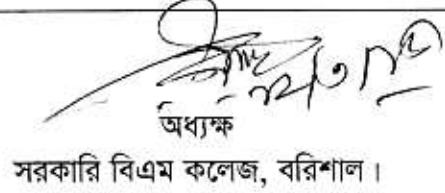 অধ্যক্ষ
সরকারি বিএম কলেজ, বরিশাল।